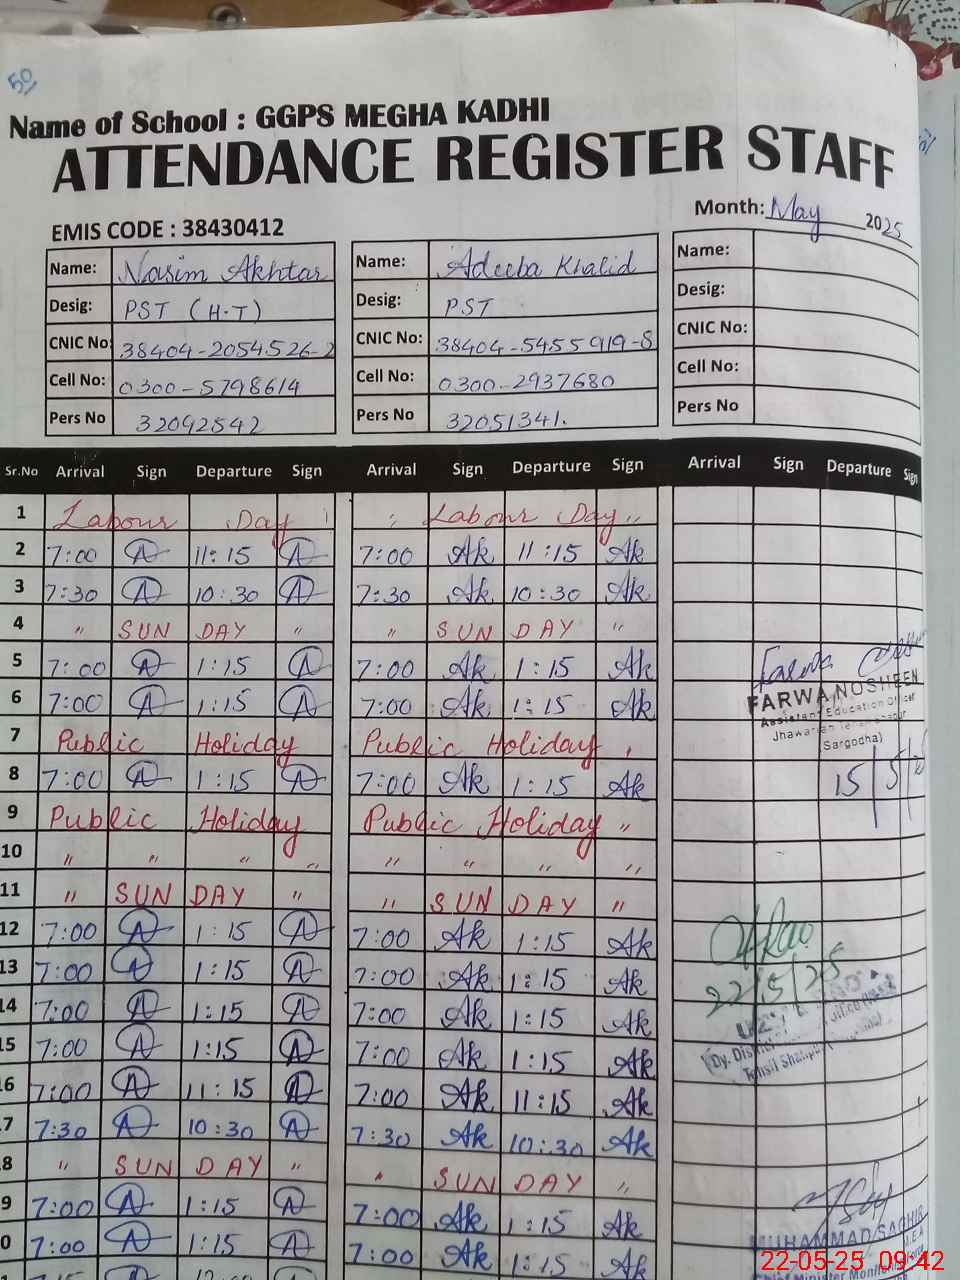 50
Name of School : GGPS MEGHA KADHI
ATTENDANCE REGISTER STAFF
EMIS CODE : 38430412
Month: May 2025
Name: Nasim Akhtar Name: Adeeba Khalid Name:
Desig: PST (H.T) Desig: PST Desig:
CNIC No: 38404-2054526-2 CNIC No: 38404-5455919-8 CNIC No:
Cell No: 0300-5798614 Cell No: 0300-2937680 Cell No:
Pers No 32092542 Pers No 32051341. Pers No
Sr.No Arrival Sign Departure Sign Arrival Sign Departure Sign Arrival Sign Departure Sign
1 Labour Day " Labour Day "
2 7:00 A 11:15 A 7:00 Ak 11:15 Ak
3 7:30 A 10:30 A 7:30 Ak 10:30 Ak
4 " SUN DAY " " SUN DAY "
5 7:00 A 1:15 A 7:00 Ak 1:15 Ak
6 7:00 A 1:15 A 7:00 Ak 1:15 Ak
FARWA NOSHEEN
Assistant Education Officer
7 Public Holiday Public Holiday
Sargodha)
8 7:00 A 1:15 A 7:00 Ak 1:15 Ak 15/5/
9 Public Holiday Public Holiday "
10 " " " " " " " "
11 " SUN DAY " " SUN DAY "
12 7:00 A 1:15 A 7:00 Ak 1:15 Ak
13 7:00 A 1:15 A 7:00 Ak 1:15 Ak
22/5/25
14 7:00 A 1:15 A 7:00 Ak 1:15 Ak
Dy. District
5 7:00 A 1:15 A 7:00 Ak 1:15 Ak
Tehsil Shahpur
6 7:00 A 11:15 A 7:00 Ak 11:15 Ak
7 7:30 A 10:30 A 7:30 Ak 10:30 Ak
8 " SUN DAY " " SUN DAY "
9 7:00 A 1:15 A 7:00 Ak 1:15 Ak
MUHAMMAD SAGHIR
0 7:00 A 1:15 A 7:00 Ak 1:15 Ak
22-05-25 09:42
Minister Monitoring